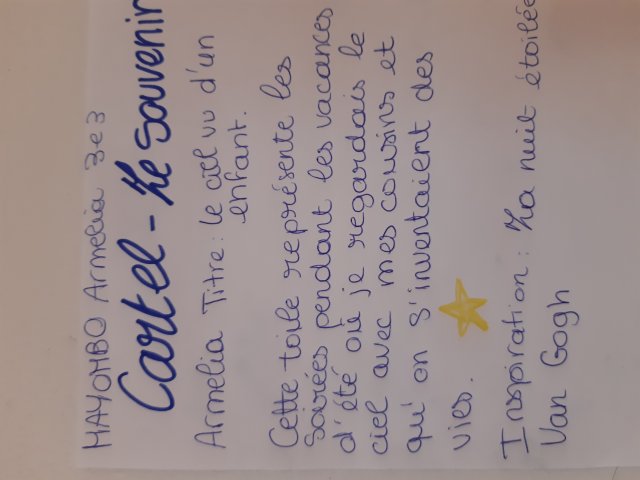 MAYOMBO Armelia 3e3
Cartel - Le Souvenir
Armelia Titre : le ciel vu d'un
enfant.
Cette toile représente les
soirées pendant les vacances
d'été où je regardais le
ciel avec mes cousins et
qu'on s'inventaient des
vies.
Inspiration : La nuit étoilée
Van Gogh